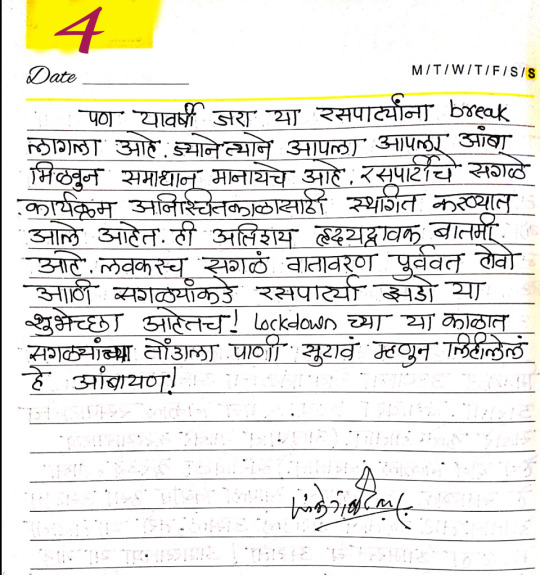 4
Date
M/T/W/T/F/S/S
पण यावर्षी जरा या रसपार्ट्यांना break
लागला आहे. ज्यानेत्याने आपला आपला आंबा
मिळवुन समाधान मानायचे आहे. रसपार्टीचे सगळे
कार्यक्रम अनिश्चितकाळासाठी स्थगित करण्यात
आले आहेत. ही अतिशय हृदयद्रावक बातमी
आहे. लवकरच सगळं वातावरण पूर्ववत होवो
आणि सगळ्यांकडे रसपार्ट्या झडो या
शुभेच्छा आहेतच! Lockdown च्या या काळात
सगळ्यांच्या तोंडाला पाणी सुटावं म्हणुन लिहीलेलं
हे आंबायण!